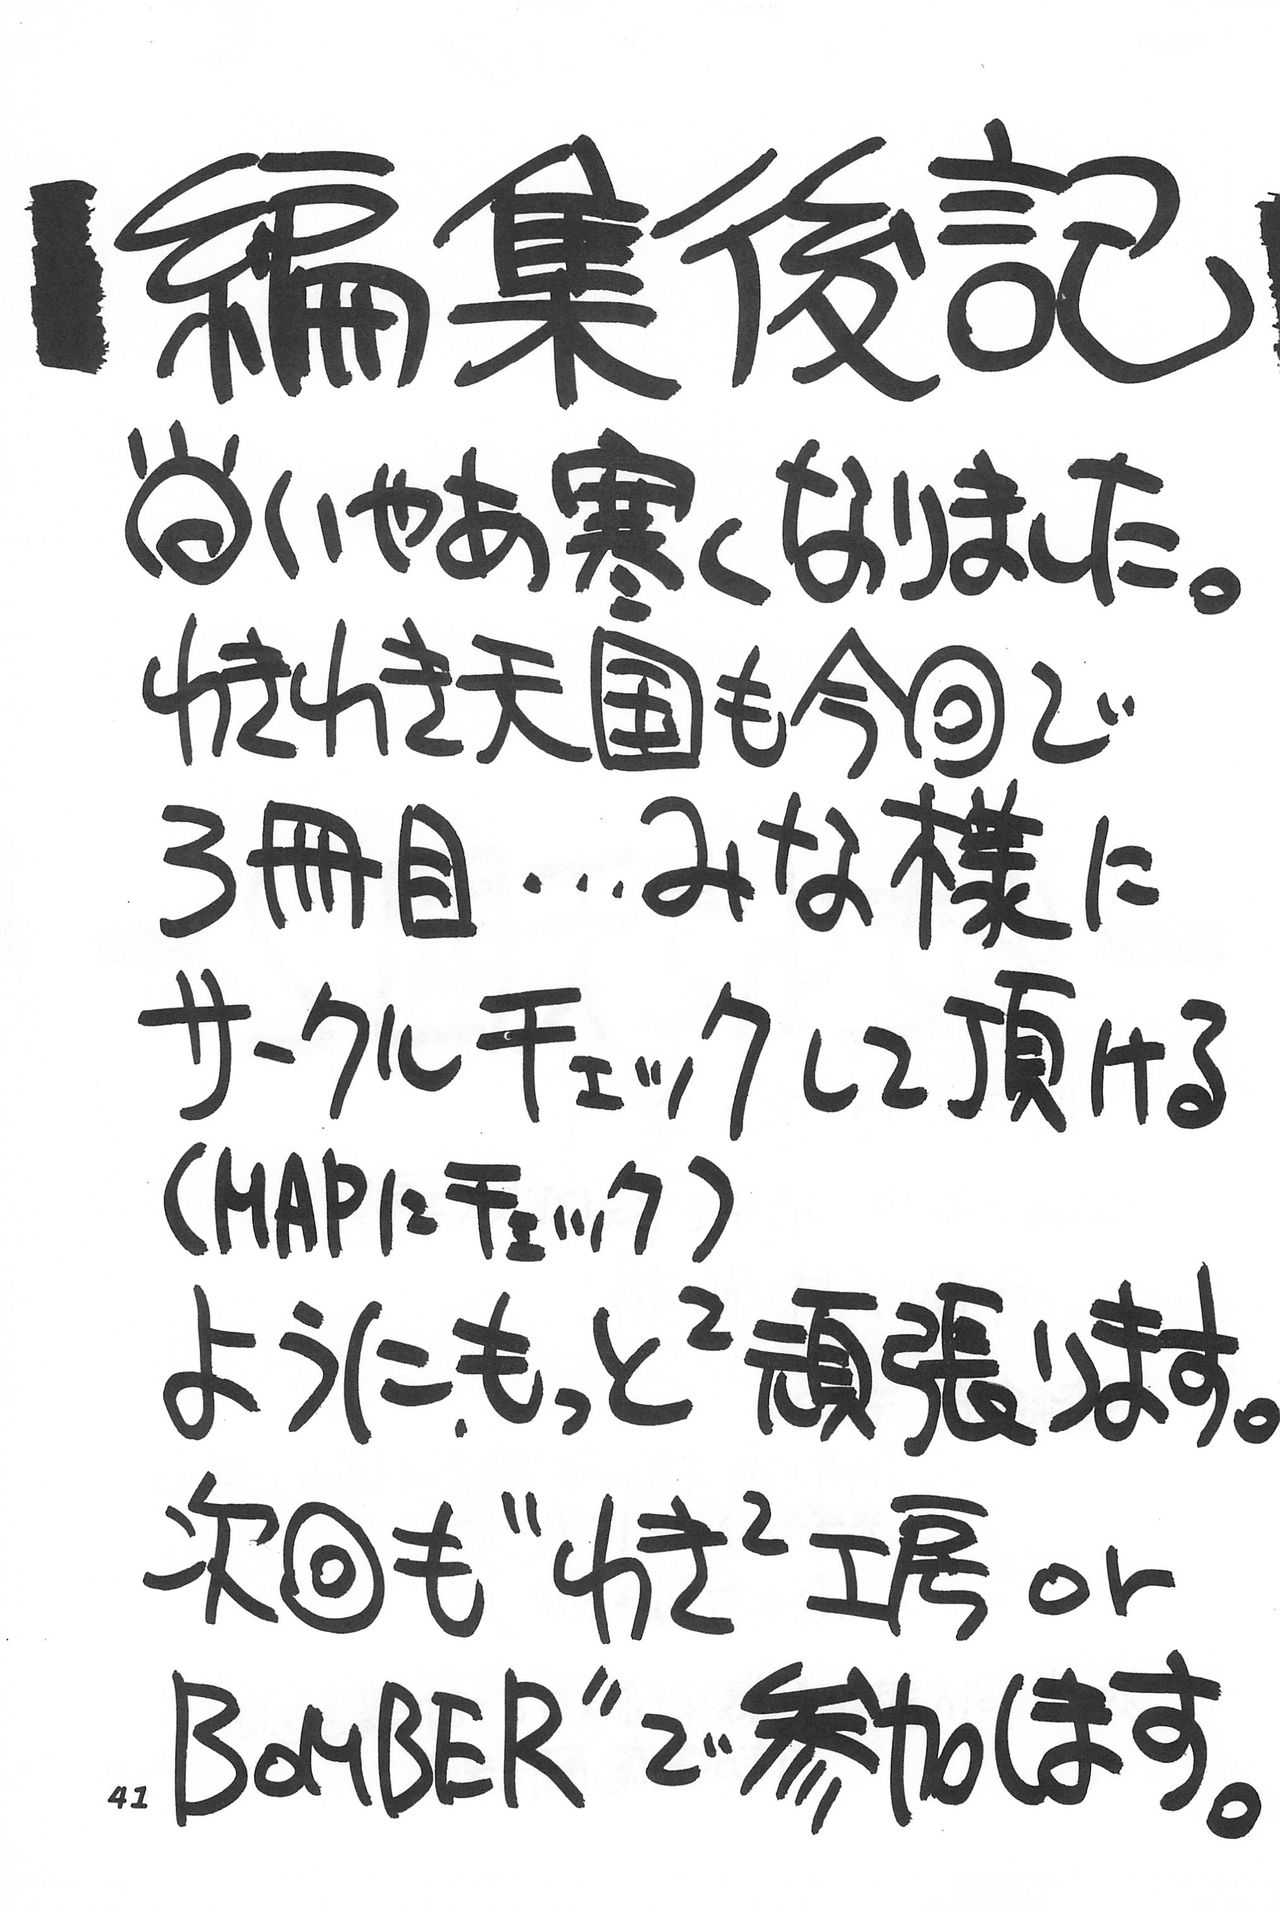 編集後記
いやあ寒くなりました。
わきわき天国も今回で
3冊目・・・・みな様に
サークルチェックして頂ける
(MAPにチェック)
ように、もっと²頑張ります。
次回も"わき²工房 or
BomBER"で参加します。
41